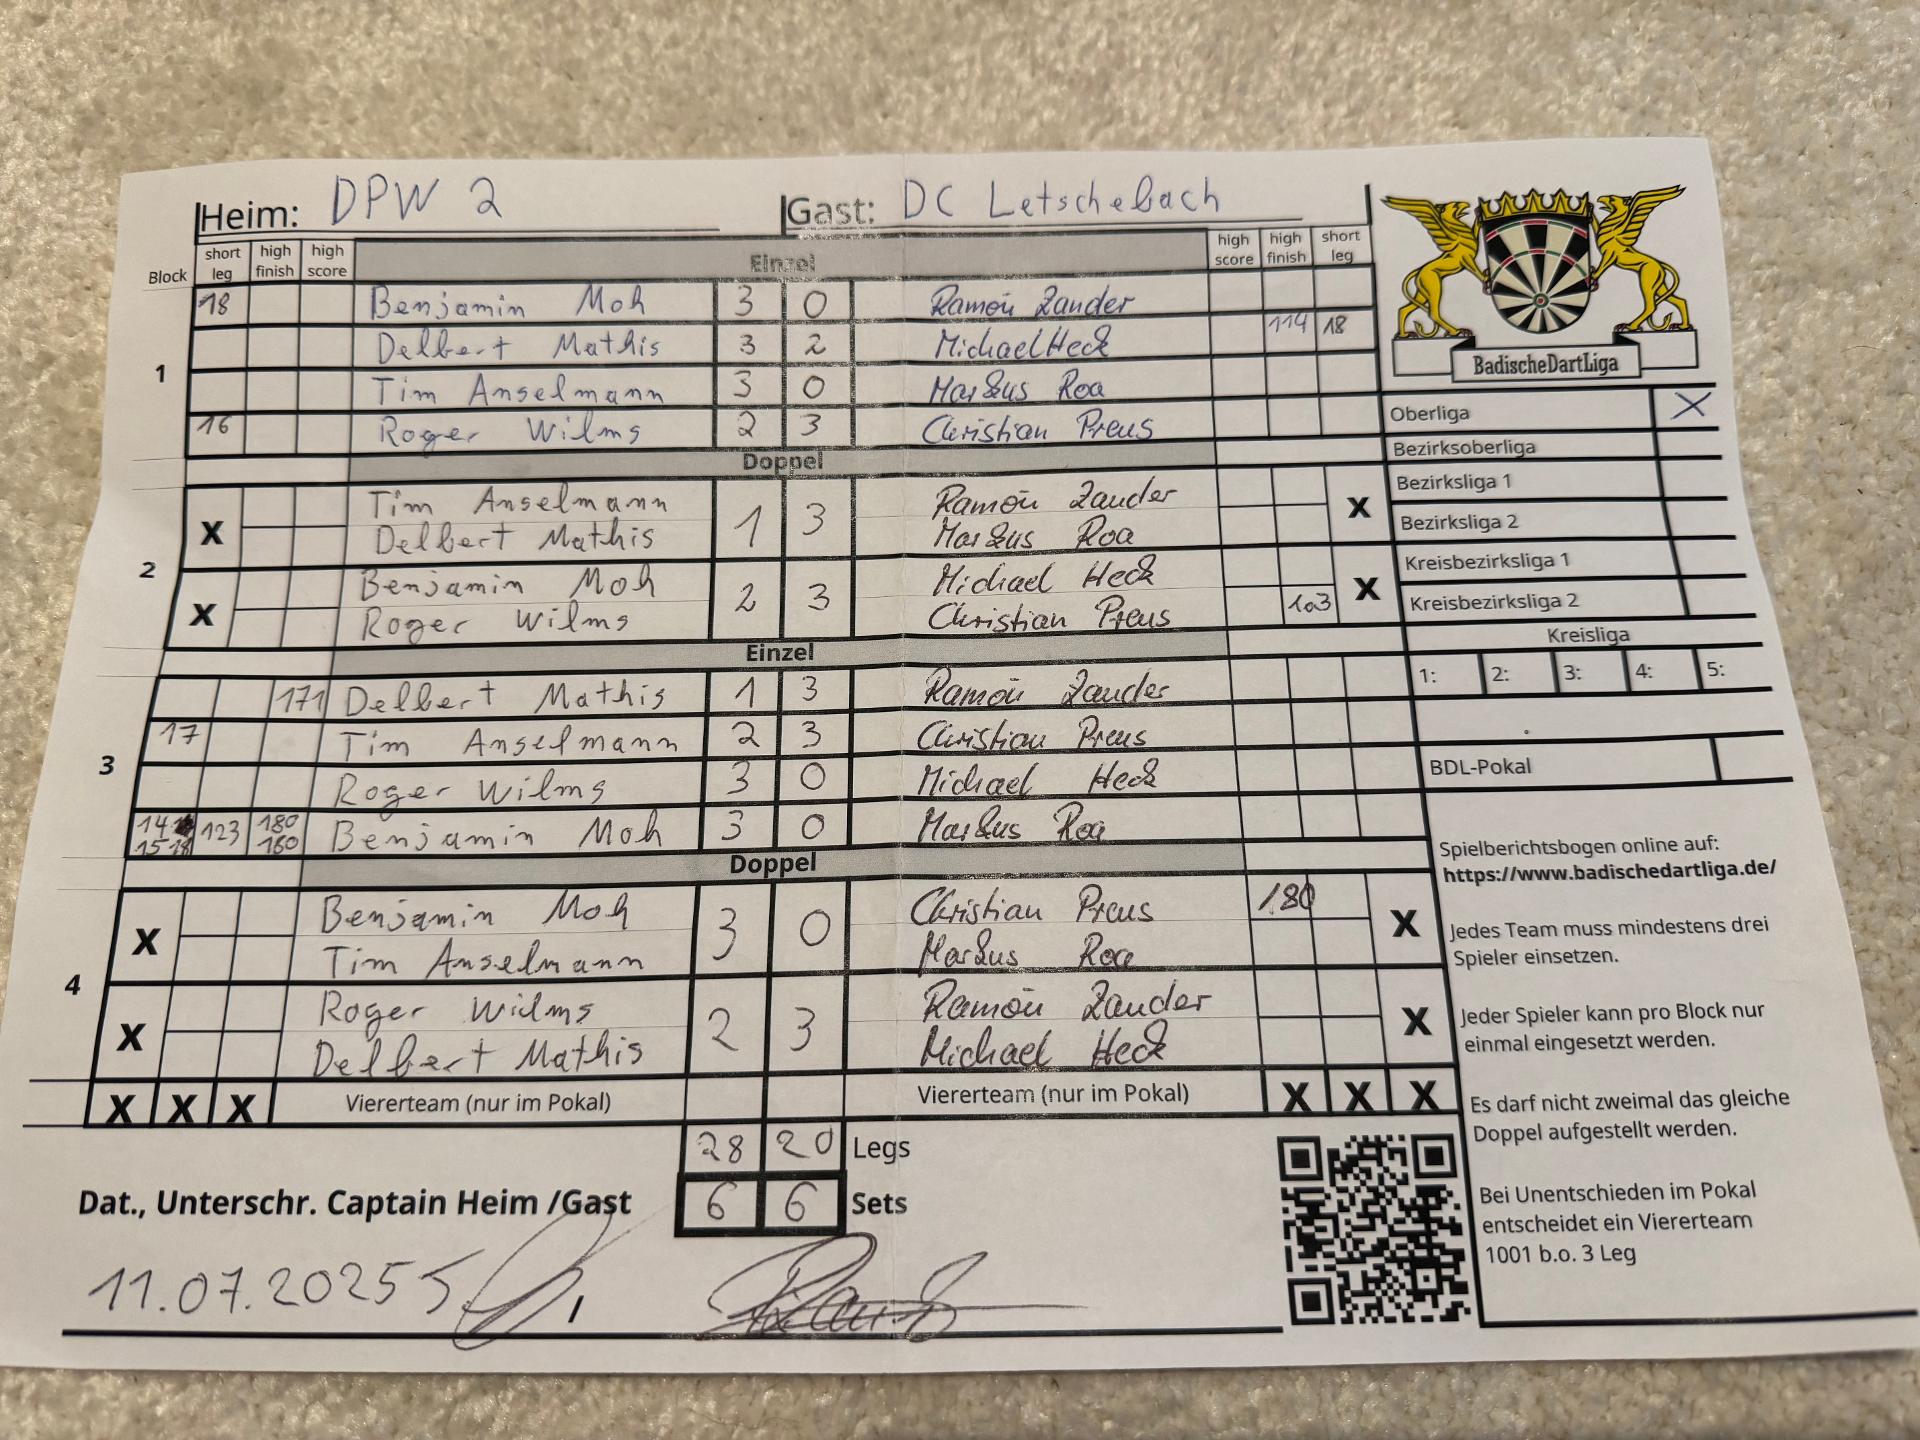 Heim: DPW 2 Gast: DC Letschebach
Block short leg high finish high score Einzel high score high finish short leg
18 Benjamin Moh 3 0 Ramón Zander
Delbert Mathis 3 2 Michael Heck 114 18
1
Tim Anselmann 3 0 Markus Roa
16 Roger Wilms 2 3 Christian Preus
Doppel
X Tim Anselmann 1 3 Ramón Zander X
Delbert Mathis Markus Roa
2
X Benjamin Moh 2 3 Michael Heck X
Roger Wilms Christian Preus 103
Einzel
171 Delbert Mathis 1 3 Ramón Zander
17 Tim Anselmann 2 3 Christian Preus
3
Roger Wilms 3 0 Michael Heck
14 123 180 Benjamin Moh 3 0 Markus Roa
15 18 180
Doppel
X Benjamin Moh 3 0 Christian Preus 180 X
Tim Anselmann Markus Roa
4
X Roger Wilms 2 3 Ramón Zander X
Delbert Mathis Michael Heck
X X X Viererteam (nur im Pokal) Viererteam (nur im Pokal) X X X
28 20 Legs
6 6 Sets
Dat., Unterschr. Captain Heim /Gast
11.07.2025
BadischeDartLiga
Oberliga X
Bezirksoberliga
Bezirksliga 1
Bezirksliga 2
Kreisbezirksliga 1
Kreisbezirksliga 2
Kreisliga
1: 2: 3: 4: 5:
BDL-Pokal
Spielberichtsbogen online auf:
https://www.badischedartliga.de/
Jedes Team muss mindestens drei
Spieler einsetzen.
Jeder Spieler kann pro Block nur
einmal eingesetzt werden.
Es darf nicht zweimal das gleiche
Doppel aufgestellt werden.
Bei Unentschieden im Pokal
entscheidet ein Viererteam
1001 b.o. 3 Leg